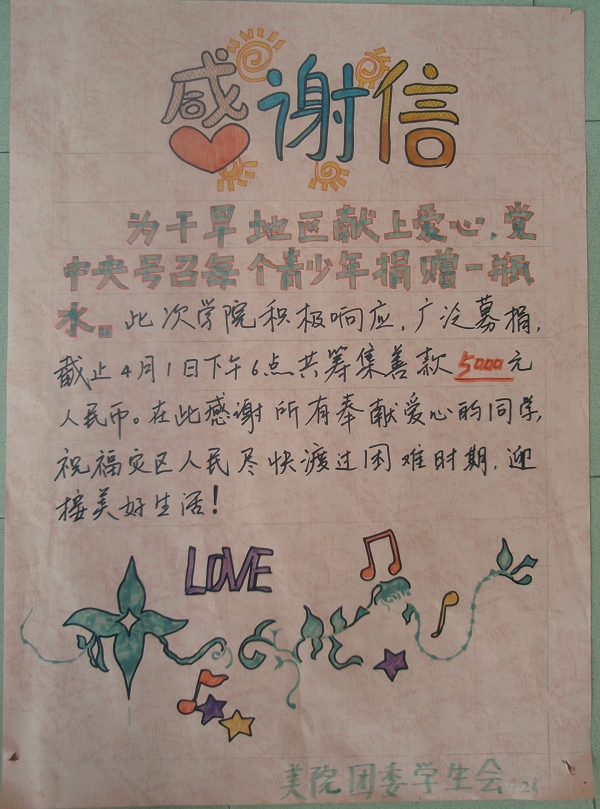 感谢信
为干旱地区献上爱心,党
中央号召每个青少年捐赠一瓶
水。此次学院积极响应,广泛募捐,
截止4月1日下午6点共筹集善款5000元
人民币。在此感谢所有奉献爱心的同学,
祝福灾区人民尽快渡过困难时期,迎
接美好生活!
LOVE
美院团委学生会